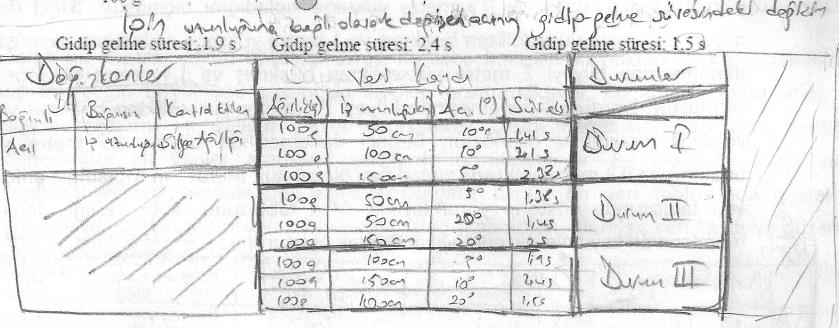 İpin uzunluğuna bağlı olarak değişen açının gidip gelme süresindeki değişim
Gidip gelme süresi: 1.9 s Gidip gelme süresi: 2.4 s Gidip gelme süresi: 1.5 s
Değişkenler Veri Kaydı Durumlar
Bağımlı Bağımsız Kontrol Edilen Ağırlık(g) İp uzunlukları Açı (°) Süre(s)
Açı İp uzunluğu Silge Ağırlığı 100g 50cm 10° 1,41s Durum I
100g 100cm 10°
100g 150cm 5° 2.38s
100g 50cm 5° 1,38s Durum II
100g 50cm 20°
100g 20° 2s
100g 100cm 1,9s Durum III
100g 150cm 10°
100g 20°